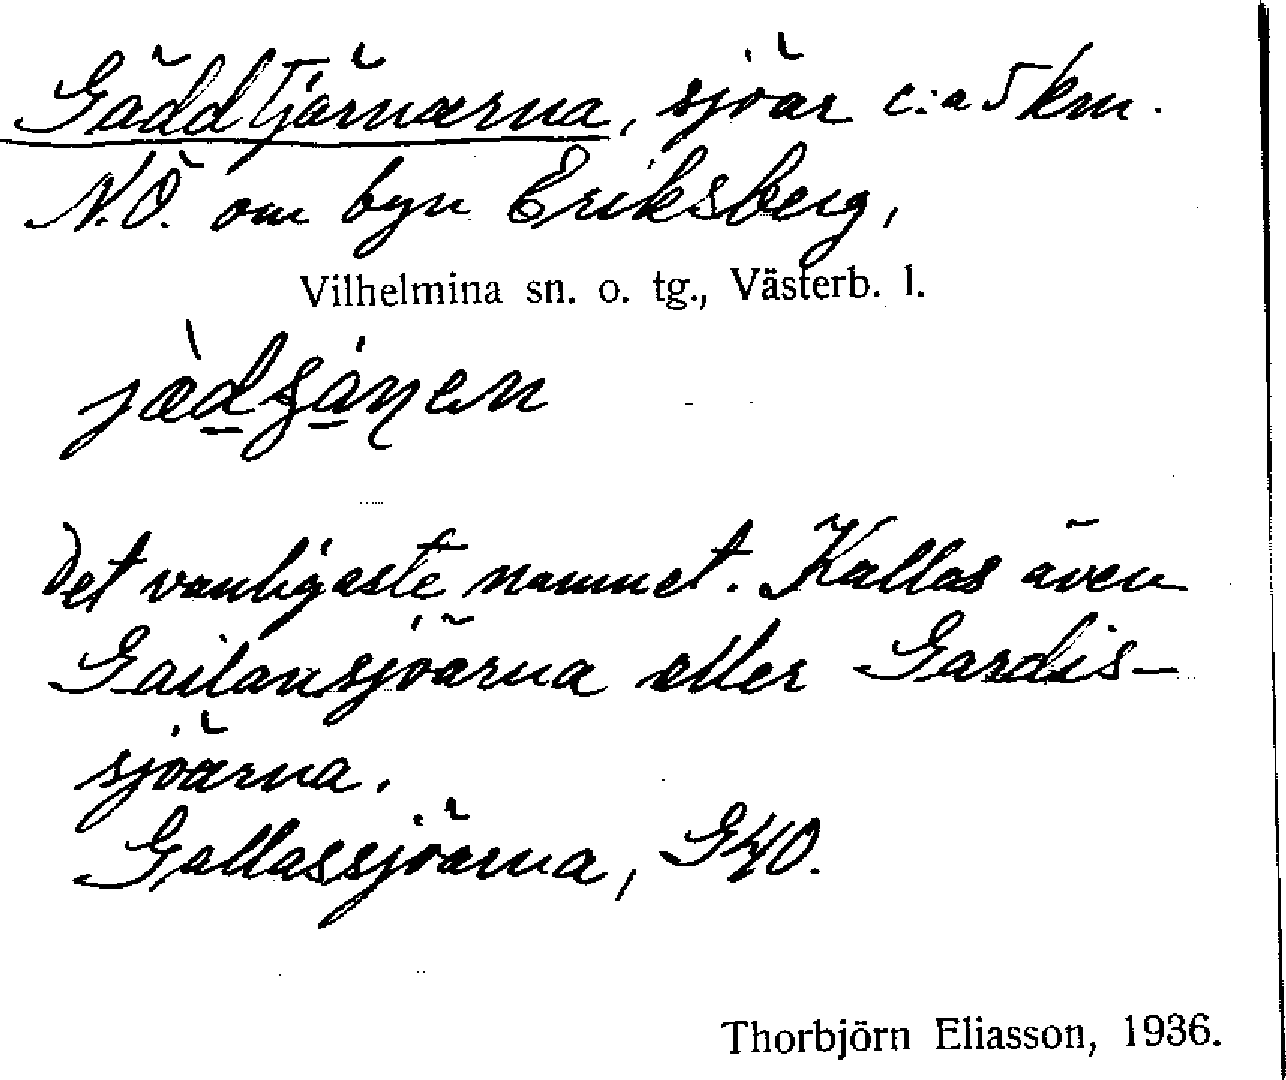 Gäddtjärnarna, sjöar c:a 5 km.
N.Ö. om byn Eriksberg,
Vilhelmina sn. o. tg., Västerb. l.
Det vanligaste namnet. Kallas även
Gailansjöarna eller Gardis-
sjöarna.
Gallassjöarna, GKO.
Thorbjörn Eliasson, 1936.